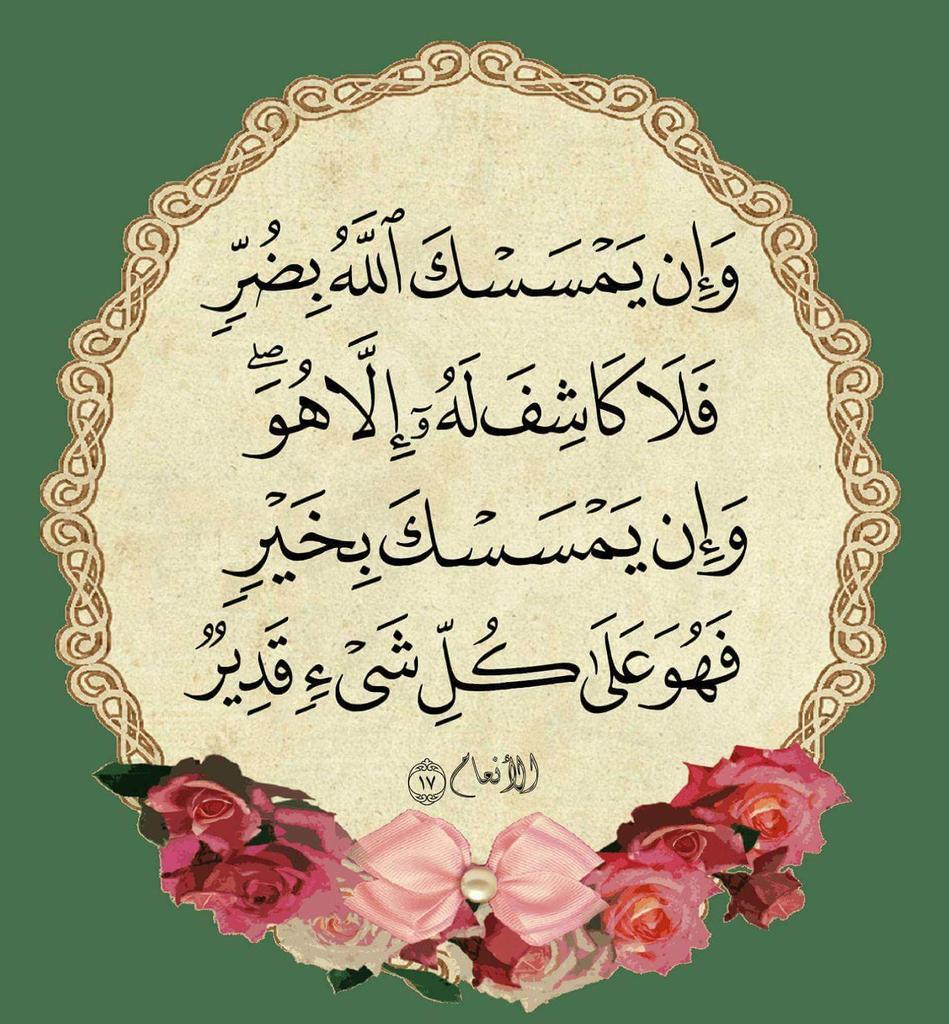 وَإِن يَمْسَسْكَ ٱللَّهُ بِضُرٍّ
فَلَا كَاشِفَ لَهُۥٓ إِلَّا هُوَ ۖ
وَإِن يَمْسَسْكَ بِخَيْرٍ
فَهُوَ عَلَىٰ كُلِّ شَىْءٍ قَدِيرٌ
الأنعام ١٧